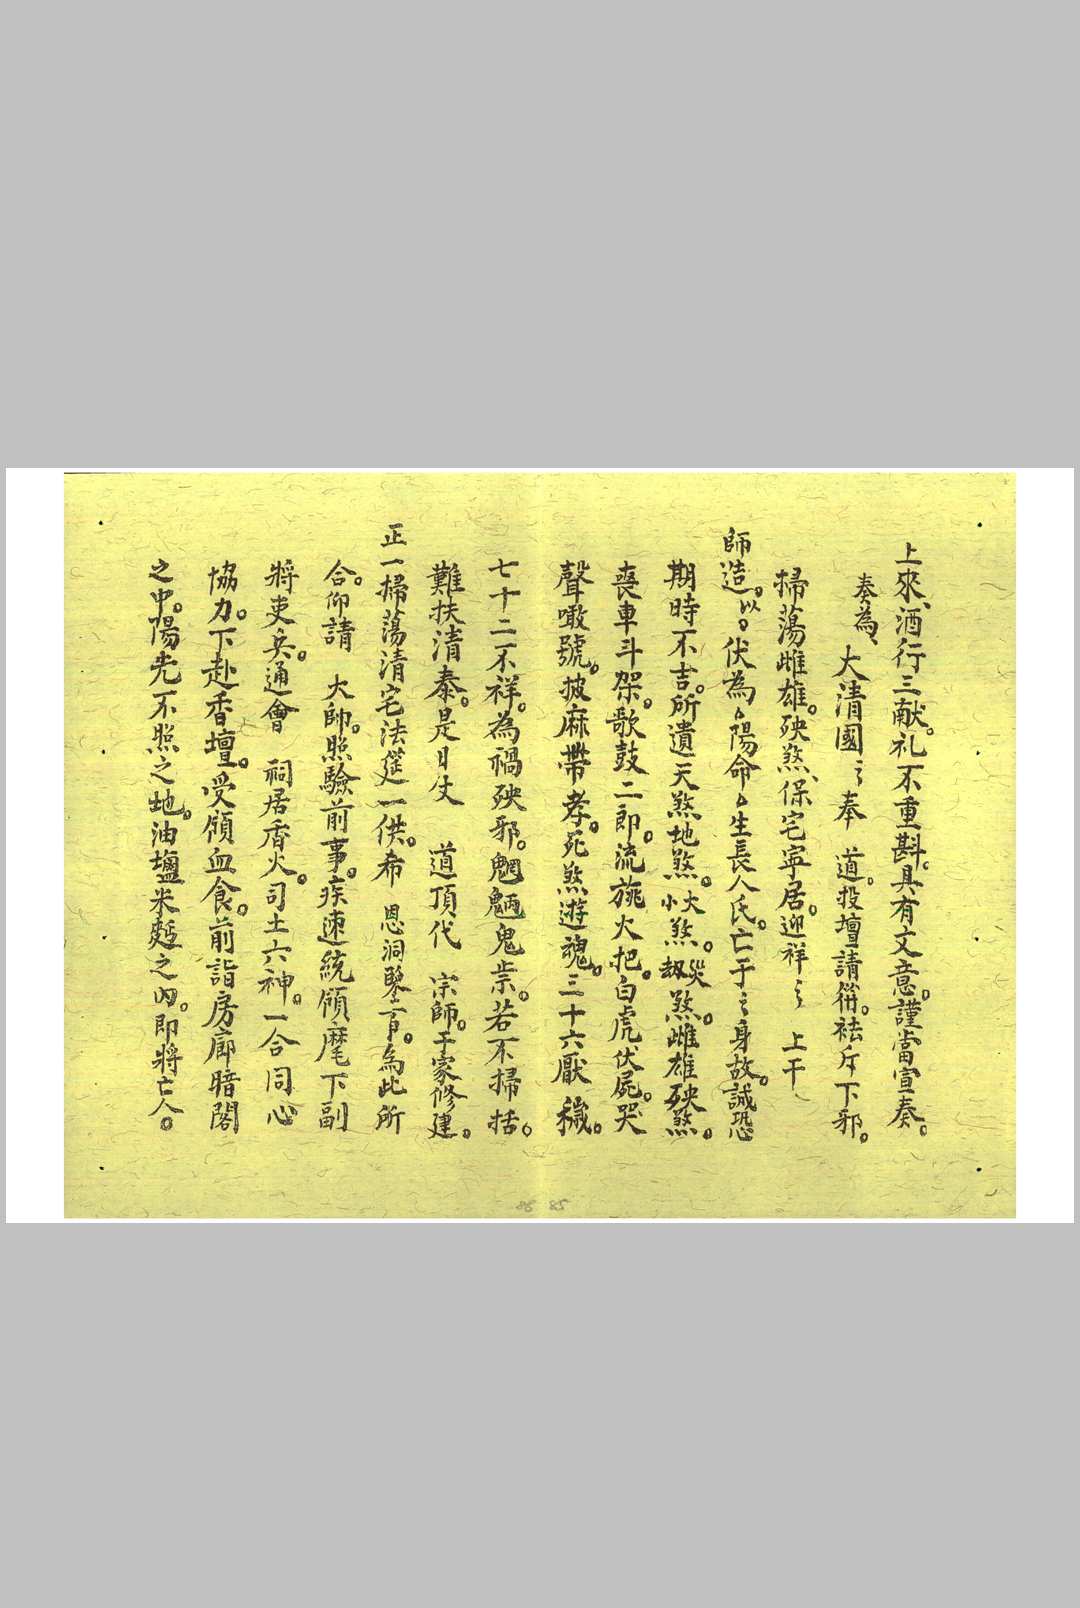 上來、酒行三献。礼不重斟。具有文意。謹當宣奏。
奏為、大清國ミ奉 道。投壇請供。祛斥下邪。
掃蕩雌雄。殃煞、保宅寧居。迎祥ミ 上干
師造。以。伏為厶陽命厶生長人氏。亡于ミ身故。誠恐
期時不吉。所遺天煞地煞。大煞。小煞 災煞。刼煞。雌雄殃煞。
喪車斗架。歌鼓二郎。流旐火把。白虎伏屍。哭
聲噉號。披麻帶孝。死煞遊魂。三十六厭 穢。
七十二不祥。為禍殃邪。魍魎鬼祟。若不掃括。
難扶清泰。是日仗 道頂代 宗師。于家修建。
正一掃蕩清宅法筵一供。希 恩洞鑒言。為此所
合。仰請 大帥。照驗前事。疾速統領麾下副
將吏兵。通會 祠居香火。司土六神。一合同心
協力。下赴香壇。受領血食。前詣房廊暗閣
之中。陽先不照之地。油壜米麪之內。即將亡人。
86 85